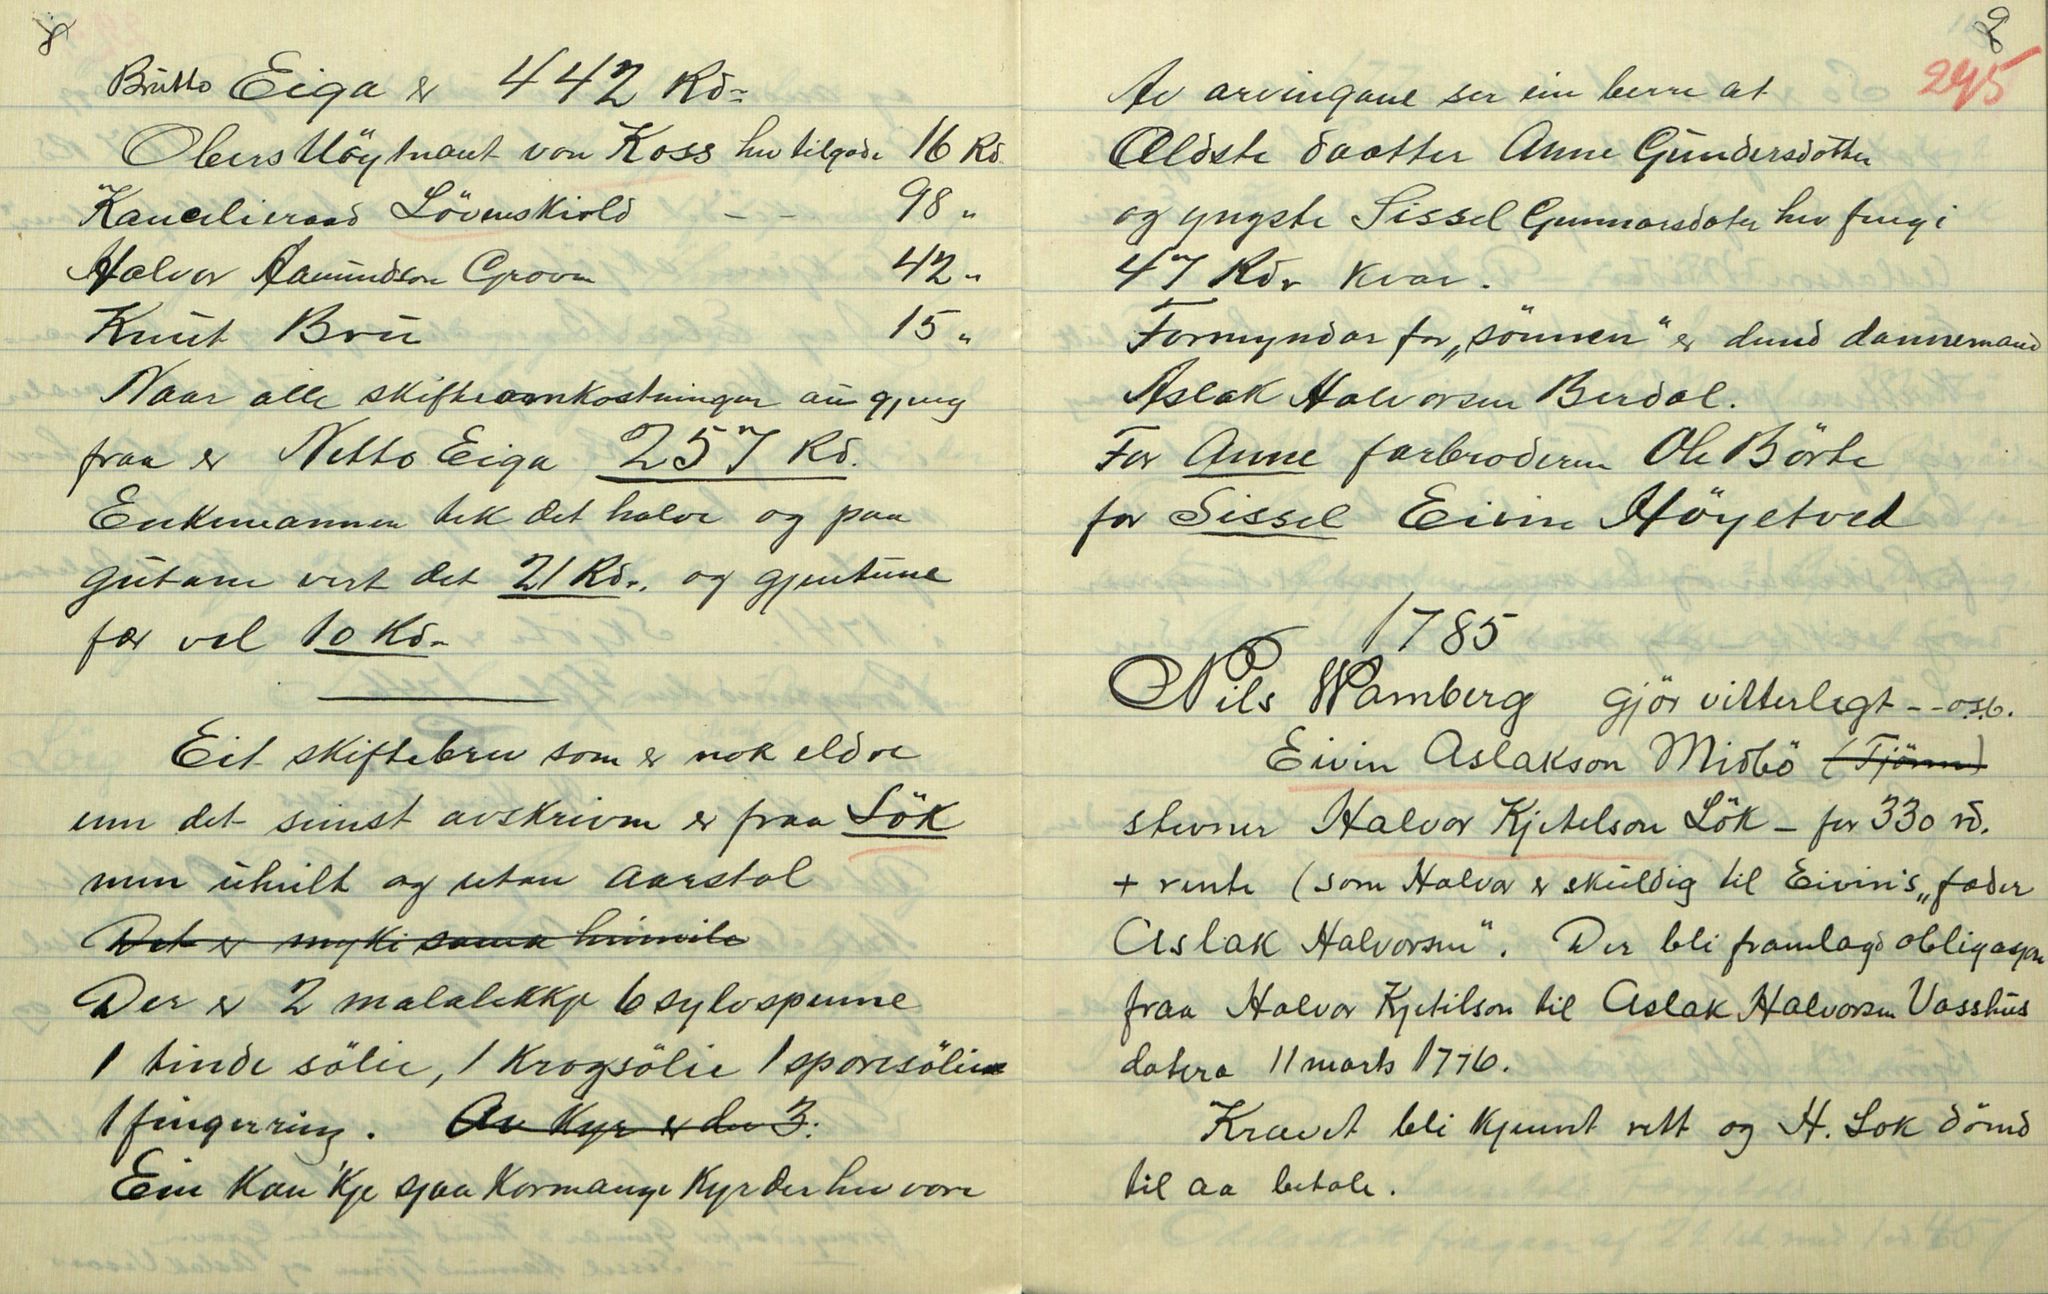 8
Brutto Eiga er 442 Rd.
Oberstlöytnant von Koss hev tilgode 16 Rd.
Kancelieraad Lövenskiold - - 98 "
Halvor Aamundson Grovn 42 "
Knut Bru 15 "
Naar alle skifteomkostningar au gjeng
fraa er Netto Eiga 257 Rd.
Enkemannen tek det halve og paa
gutane vert det 21 Rd. og gjentune
fær vel 10 Rd.
Eit skiftebrev som er nok eldre
enn det sinst avskrivne er fraa Lök
men uheilt og utan aarstal
Det er myki sama
Der er 2 malalekkje 6 sylvspune
1 tinde sölie, 1 Krogsölie 1 sporesölie
1 fingerring. Av Kyr er der 3.
Ein kan 'kje sjaa kormange Kyr der hev vore
9
245
Av arvingane ser ein berre at
Ældste daatter Anne Gundersdotter
og yngste Sissel Gunnarsdoter hev fengi
47 Rd. kvar.
Formyndar for „sönnen" er dend dannemand
Aslak Halvorsen Berdal.
For Anne farbroderen Ole Börte
for Sissel Eivin Höyetved
1785
Nils Wamberg gjör vitterlegt - - o.s.b.
Eivin Aslakson Midbö (Tjönn)
stevner Halvor Kjetelson Lök – for 330 rd.
+ rente (som Halvor er skuldig til Eivin's „fader
Aslak Halvorsen". Der bli framlagd obligasjon
fraa Halvor Kjetilson til Aslak Halvorsen Vasshus
datera 11 marts 1776.
Kravet bli kjennt rett og H. Lok dömd
til aa betale.